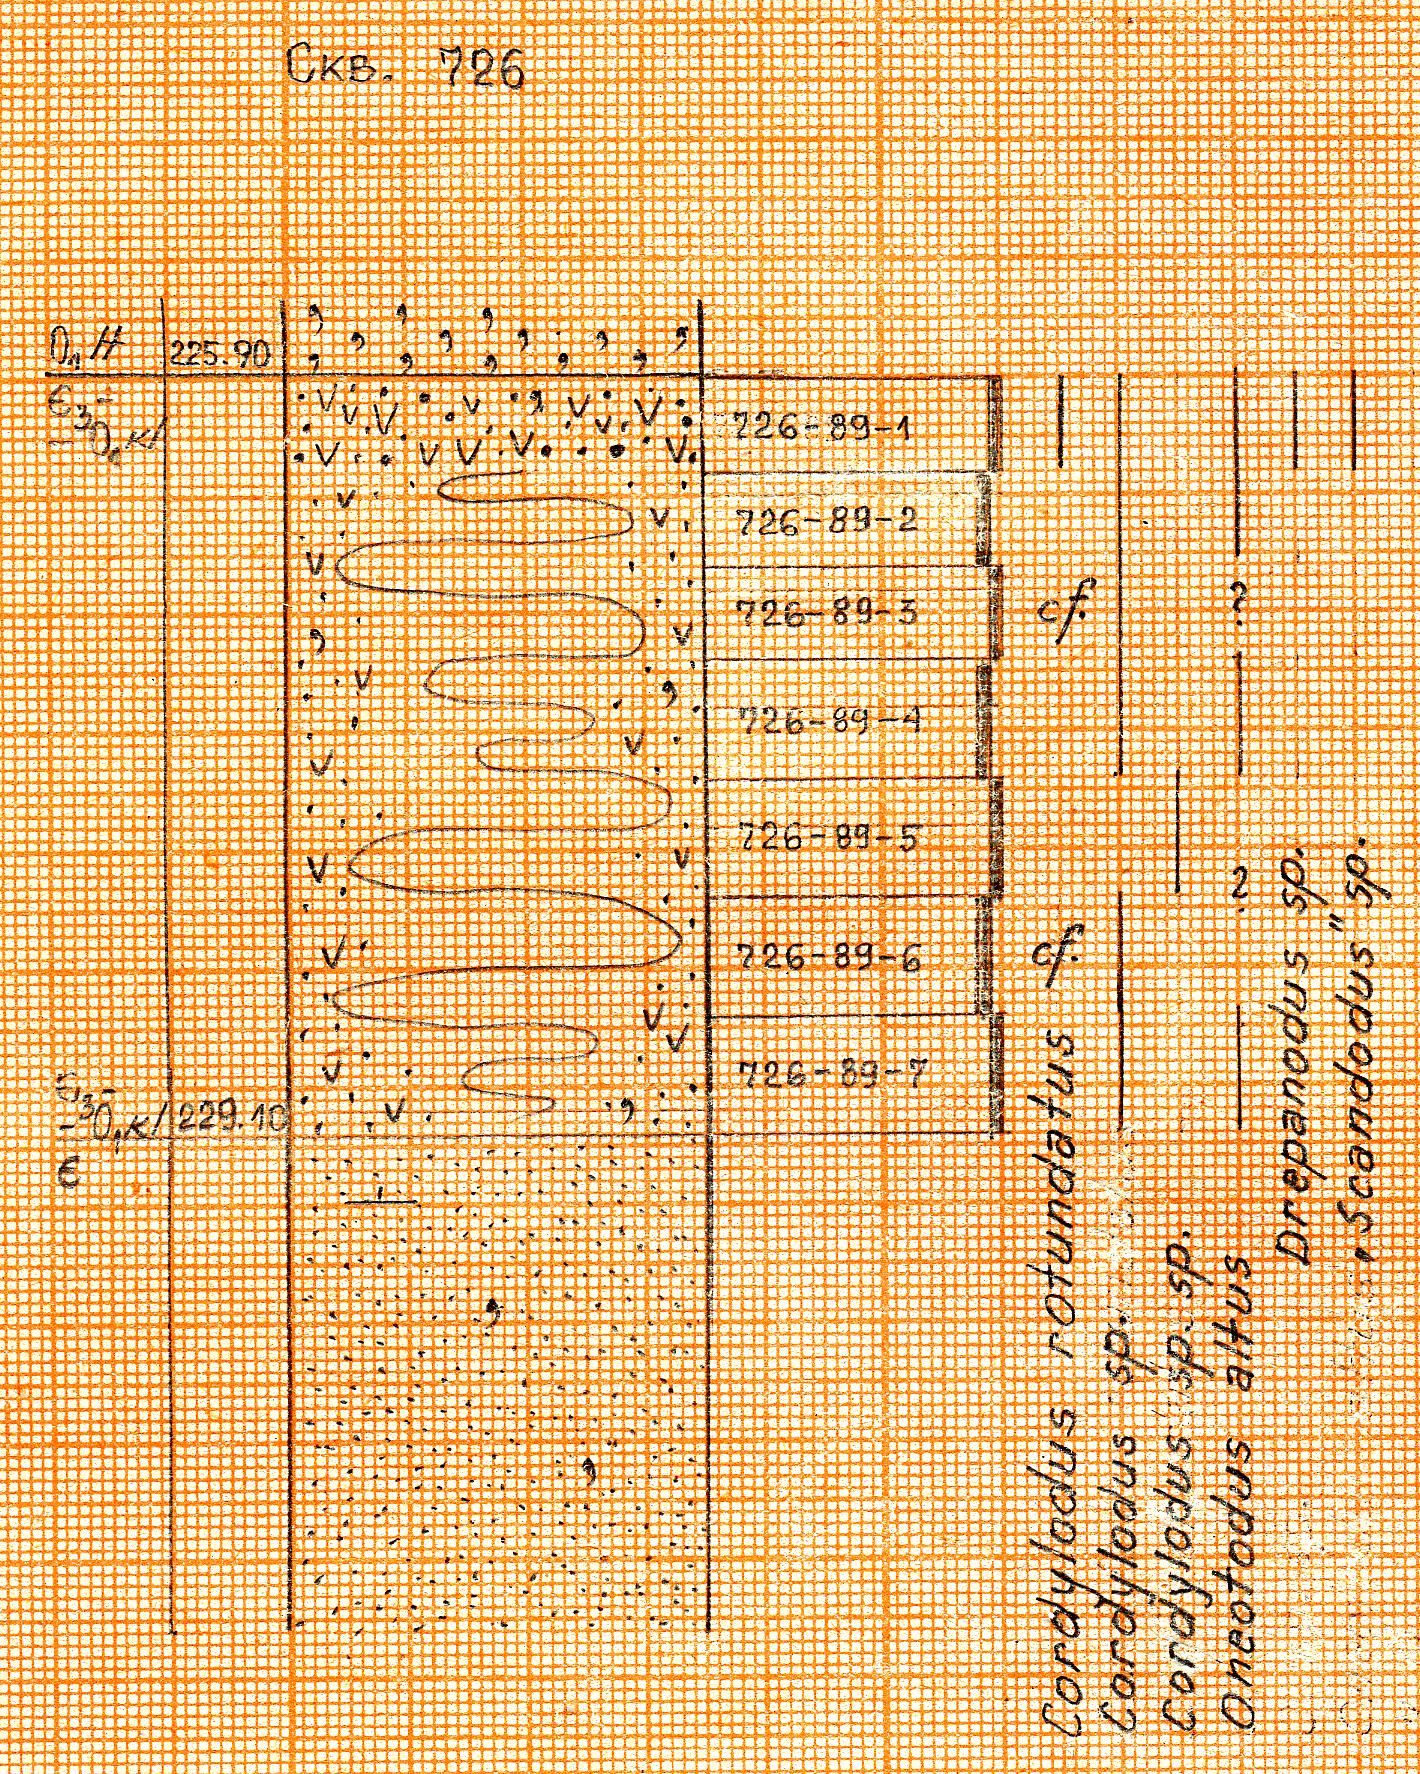 Скв. 726
О₁ н 225.90
Є₃-
-О₁ кl
726-89-1
726-89-2
726-89-3
cf. ?
726-89-4
726-89-5
?
726-89-6
cf.
726-89-7
Є₃-
-О₁ кl 229.10
Є
Cordylodus rotundatus
Cordylodus sp.
Cordylodus sp. sp.
Oneotodus altus
Drepanodus sp.
„Scandodus" sp.